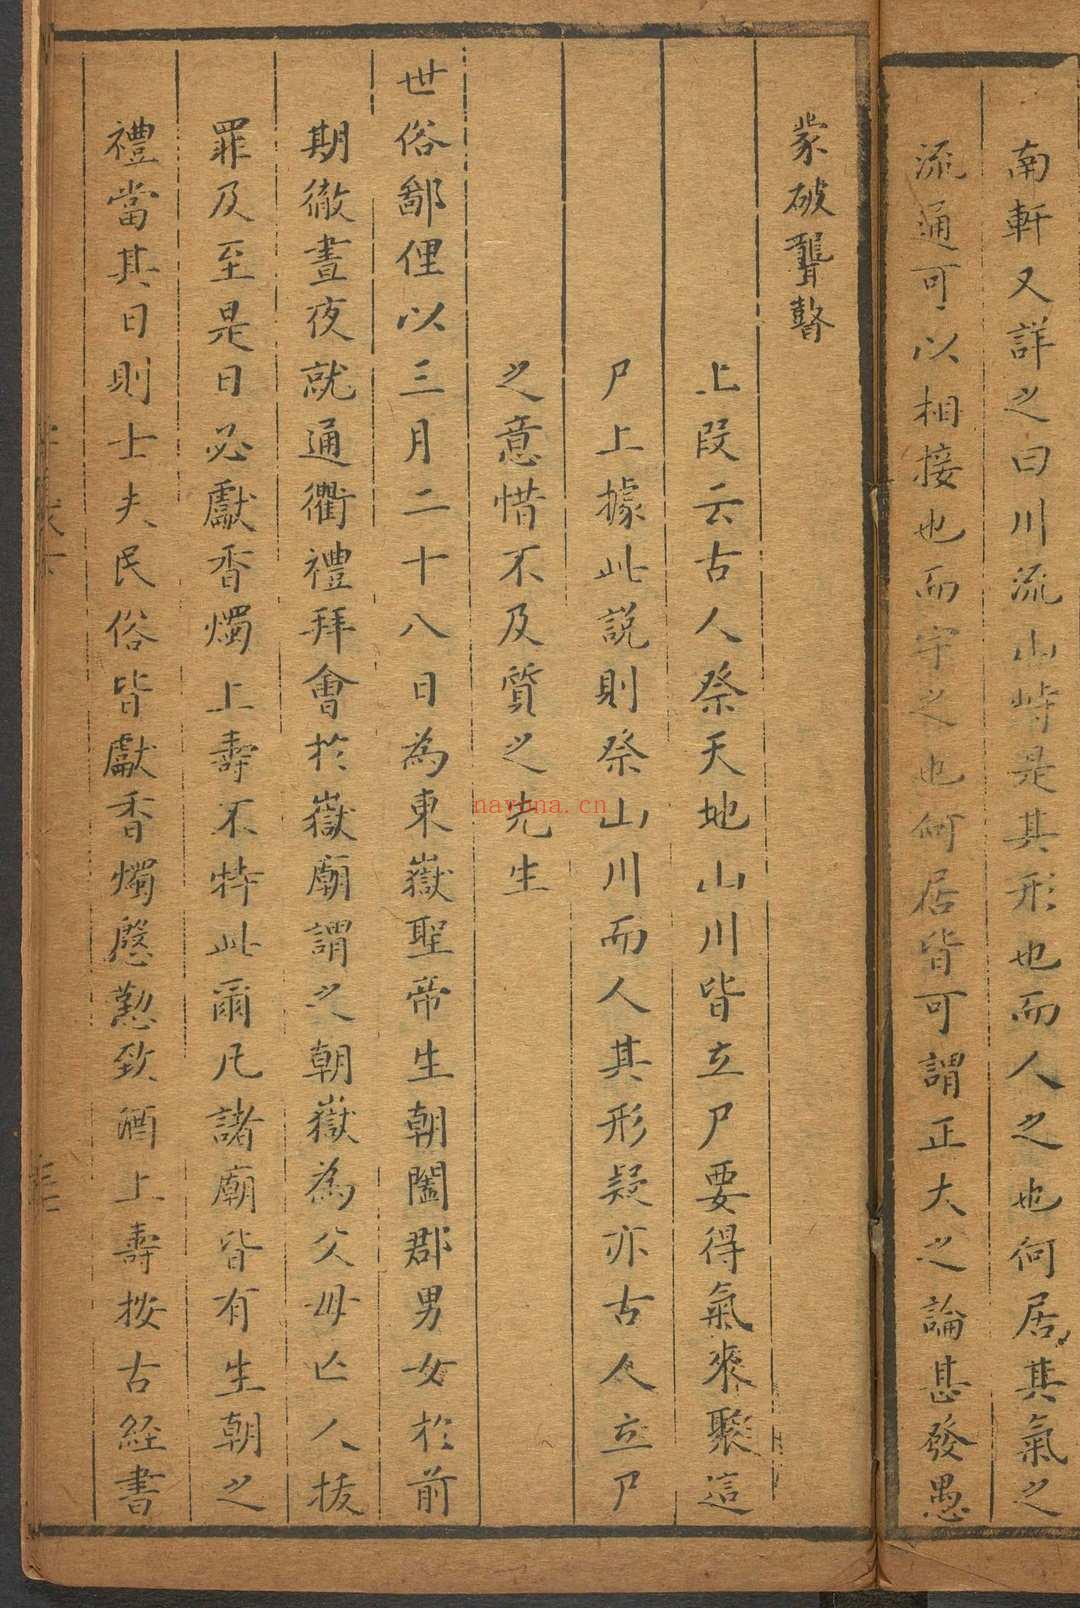 南軒又詳之曰川流山峙是其形也而人之也何居其氣之
流通可以相接也而宇之也何居皆可謂正大之論甚發愚
蒙破聾瞽
上段云古人祭天地山川皆立尸要得氣來聚這
尸上據此說則祭山川而人其形疑亦古人立尸
之意惜不及質之先生
世俗鄙俚以三月二十八日為東嶽聖帝生朝闔郡男女於前
期徹晝夜就通衢禮拜會於嶽廟謂之朝嶽為父母亡人拔
罪及至是日必獻香燭上壽不特此爾凡諸廟皆有生朝之
禮當其日則士夫民俗皆獻香燭慇懃致酒上壽按古經書
nayona.cn